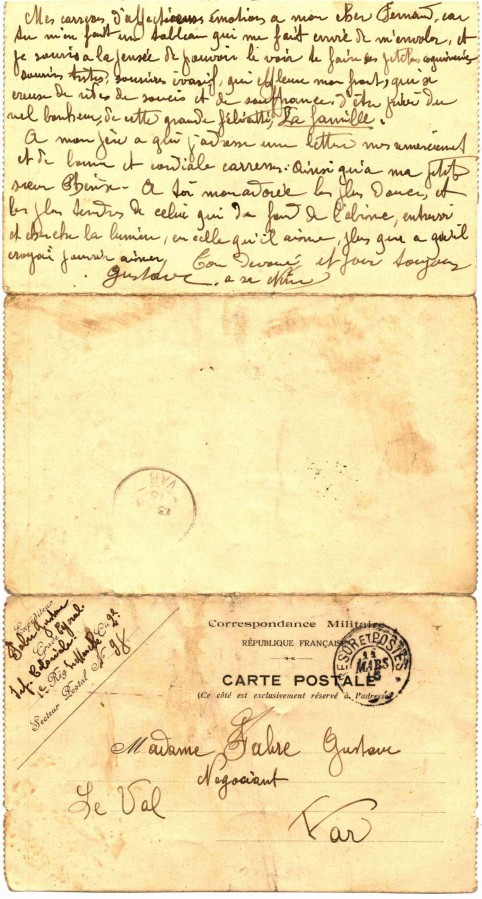 Mes caresses d'affectueuses émotions a mon cher Fernand, car
tu m'en fait un tableau qui me fait envie de m'envoler, et
je souris a la pensée de pouvoir le voir te faire ses petites coquineries
sourires tristes, sourires évasif, qui effleure mon front, qui se
creuse de rides de soucis et de souffrance, d'être privé du
bonheur, de cette grande félicité, La famille.
A mon père a qui j'adresse une lettre mes
et de bonne et cordiale caresses. Ainsi qu'a ma petite
sœur A toi mon adorée les plus douces, et
les plus tendres de celui qui du fond de l'abime, entrevoi
et cherche la lumière, en celle qu'il aime, plus que a qu'il
croyait pouvoir aimer, Ton Dévoué et pour toujours
Gustave
VAR
Correspondance Militaire
RÉPUBLIQUE FRANÇAISE
CARTE POSTALE
(Ce côté est exclusivement réservé à l'adresse)
TRESOR ET POSTES
MARS
Expéditeur
Fabre Gustave
Grade
Inf. Coloniale
Rég.
Secteur Postal N°
Madame Fabre Gustave
Négociant
Le Val
Var